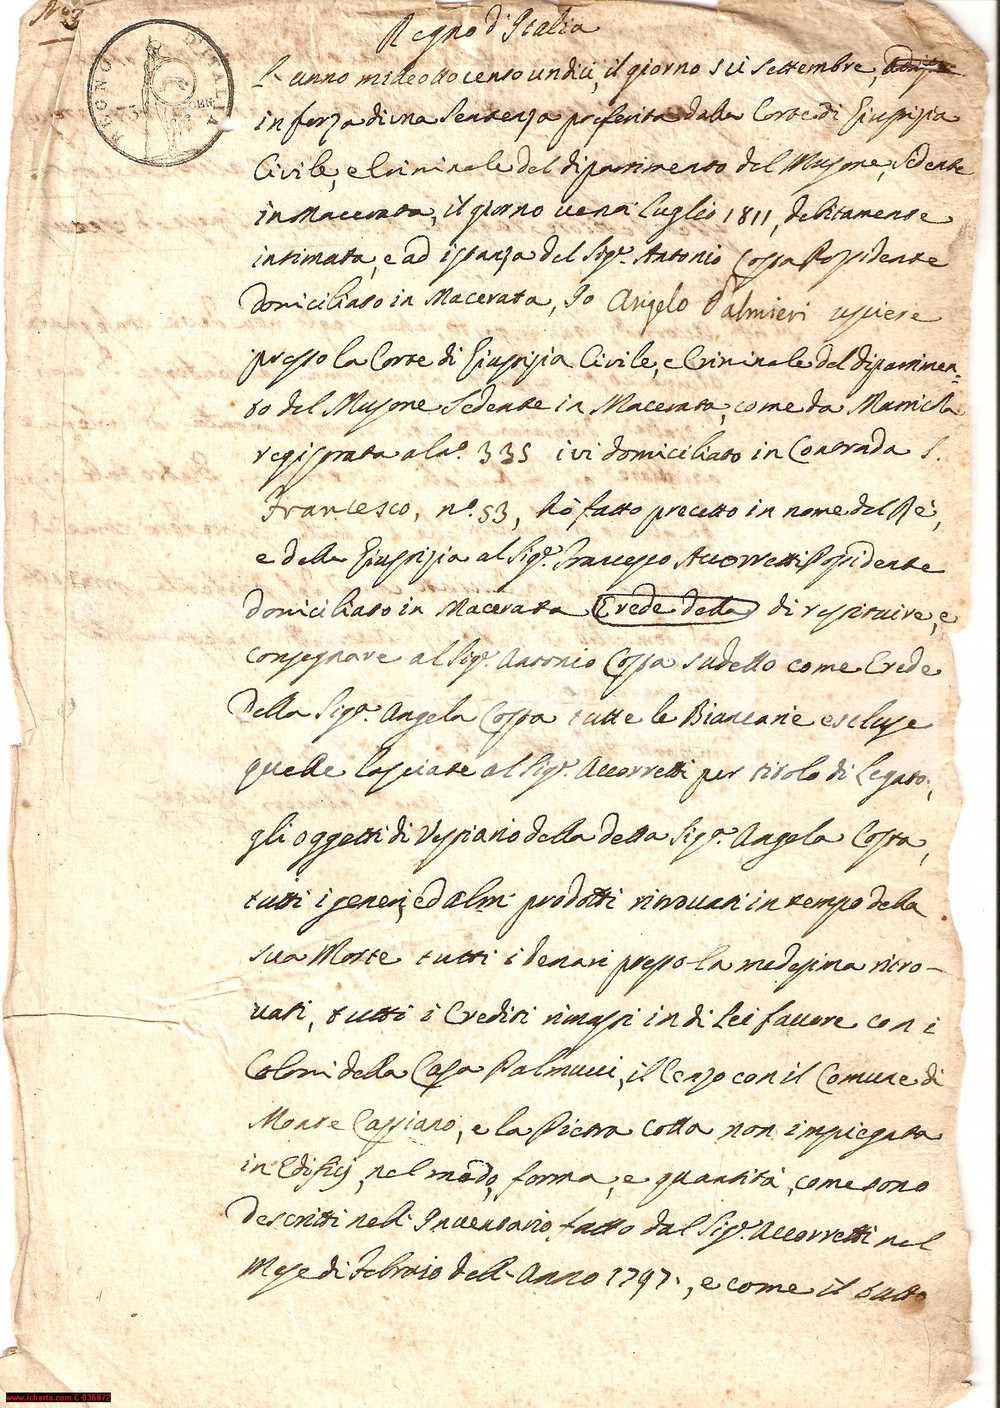 Regno d'Italia
L'anno mileottocento undici, il giorno sei Settembre,
in forza di una Sentenza proferita dalla Corte di Giustizia
Civile, e Criminale del dipartimento del Musone, Sedente
in Macerata, il giorno venti Luglio 1811, debitamente
intimata, e ad istanza del Sigr. Antonio Costa Possidente
domiciliato in Macerata, Io Angelo Palmieri usciere
presso la Corte di Giustizia Civile, e Criminale del dipartimen-
to del Musone Sedente in Macerata, come da Matricola
registrata al no. 335 ivi domiciliato in Contrada S.
Francesco, no. 53, hò fatto precetto in nome del Rè,
e della Giustizia al Sigr. Francesco Accorretti Possidente
domiciliato in Macerata Erede della di restituire, e
consegnare al Sigr. Antonio Costa sudetto come Erede
della Siga. Angela Costa tutte le Biancarie escluse
quelle lasciate al Sigr. Accorretti per titolo di Legato,
gli oggetti di Vestiario della detta Siga. Angela Costa,
tutti i generi, ed altri prodotti ritrovati in tempo della
sua Morte tutti i denari presso la medesima ritro-
vati, tutti i Crediti rimasti in di Lei favore con i
Coloni della Casa Palmucci, il Censo con il Comune di
Monte Cassiano, e la Pietra cotta non impiegata
in Edificj, nel modo, forma, e quantità, come sono
descritti nell'Inventario fatto dal Sigr. Accorretti nel
Mese di Febraio dell'Anno 1797, e come il tutto
REGNO D'ITALIA
www.icharta.com C-036872